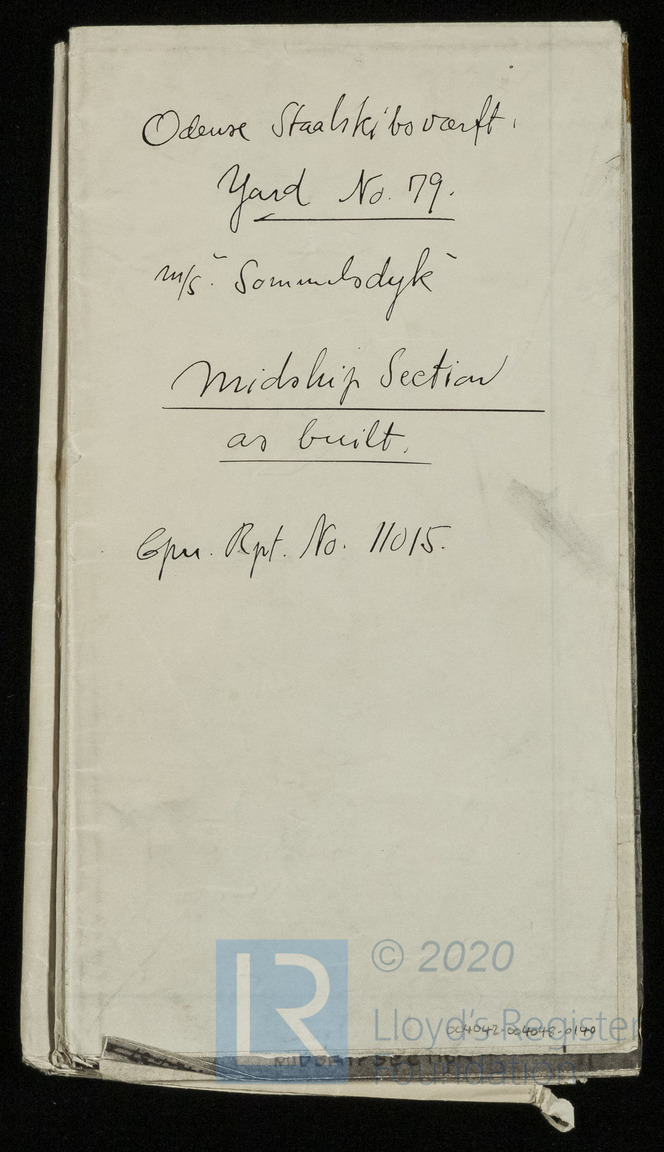 Odense Staalskibsværft.
Yard No. 79.
m/s "Sommelsdyk"
Midship Section
as built.
Cpn. Rpt. No. 11015.
LR
© 2020
Lloyd's Register
Foundation
004042-004048-0140